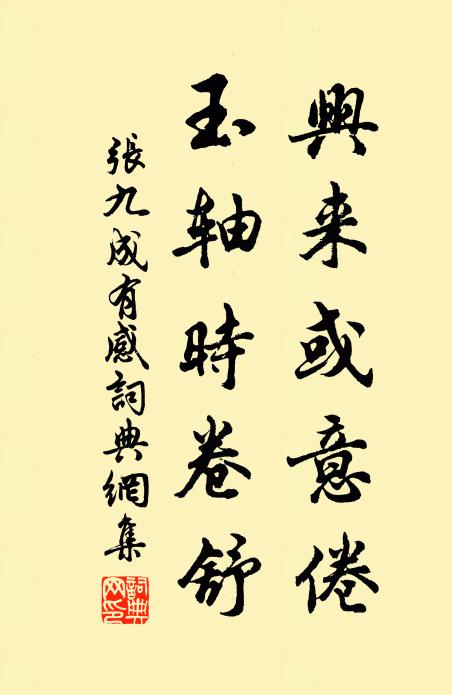 興来或意倦
玉轴時卷舒
張九成有感詞典網集
詞典网印